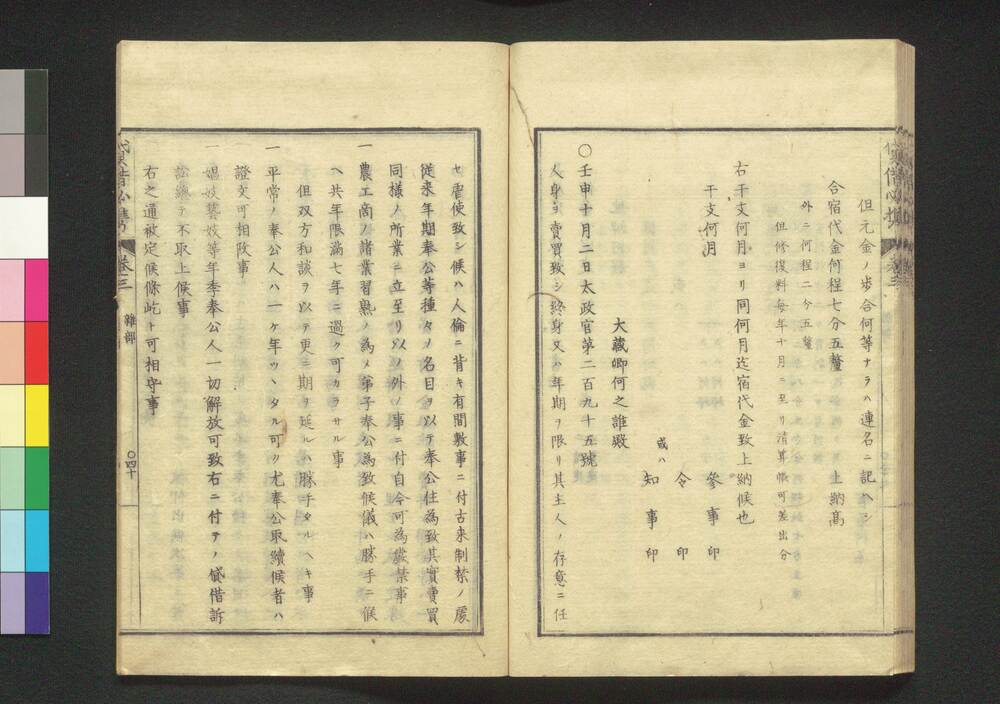 但元金ノ歩合何等ナラハ連名ニ記ヘシ
合宿代金何程七分五釐 上納高
外ニ何程二今五釐
但修復料毎年十月ニ至リ清算帳可差出分
右干支何月ヨリ同何月迄宿代金致上納候也
干支何月
參事 印
令 印
或ハ
知事 印
大藏卿何之誰殿
〇壬申十月二日太政官第二百九十五號
人身ヲ賣買致シ終身又ハ年期ヲ限リ其主人ノ存意ニ任
セ虐使致シ候ハ人倫ニ背キ有間敷事ニ付古来制禁ノ處
従来年期奉公等種々ノ名目ヲ以テ奉公住為致其實賣買
同様ノ所業ニ立至リ以ノ外ノ事ニ付自今可為嚴禁事
一農工商ノ諸業習熟ノ為メ弟子奉公為致候儀ハ勝手ニ候
ヘ共年限満七年ニ過ク可カラサル事
但双方和談ヲ以テ更ニ期ヲ延ルハ勝手タルヘキ事
一平常ノ奉公人ハ一ケ年ツヽタル可ク尤奉公取續候者ハ
證文可相改事
一娼妓藝妓等年季奉公人一切解放可致右ニ付テノ貸借訴
訟總テ不取上候事
右之通被定候條屹ト可相守事
巻三 雜部 〇四十